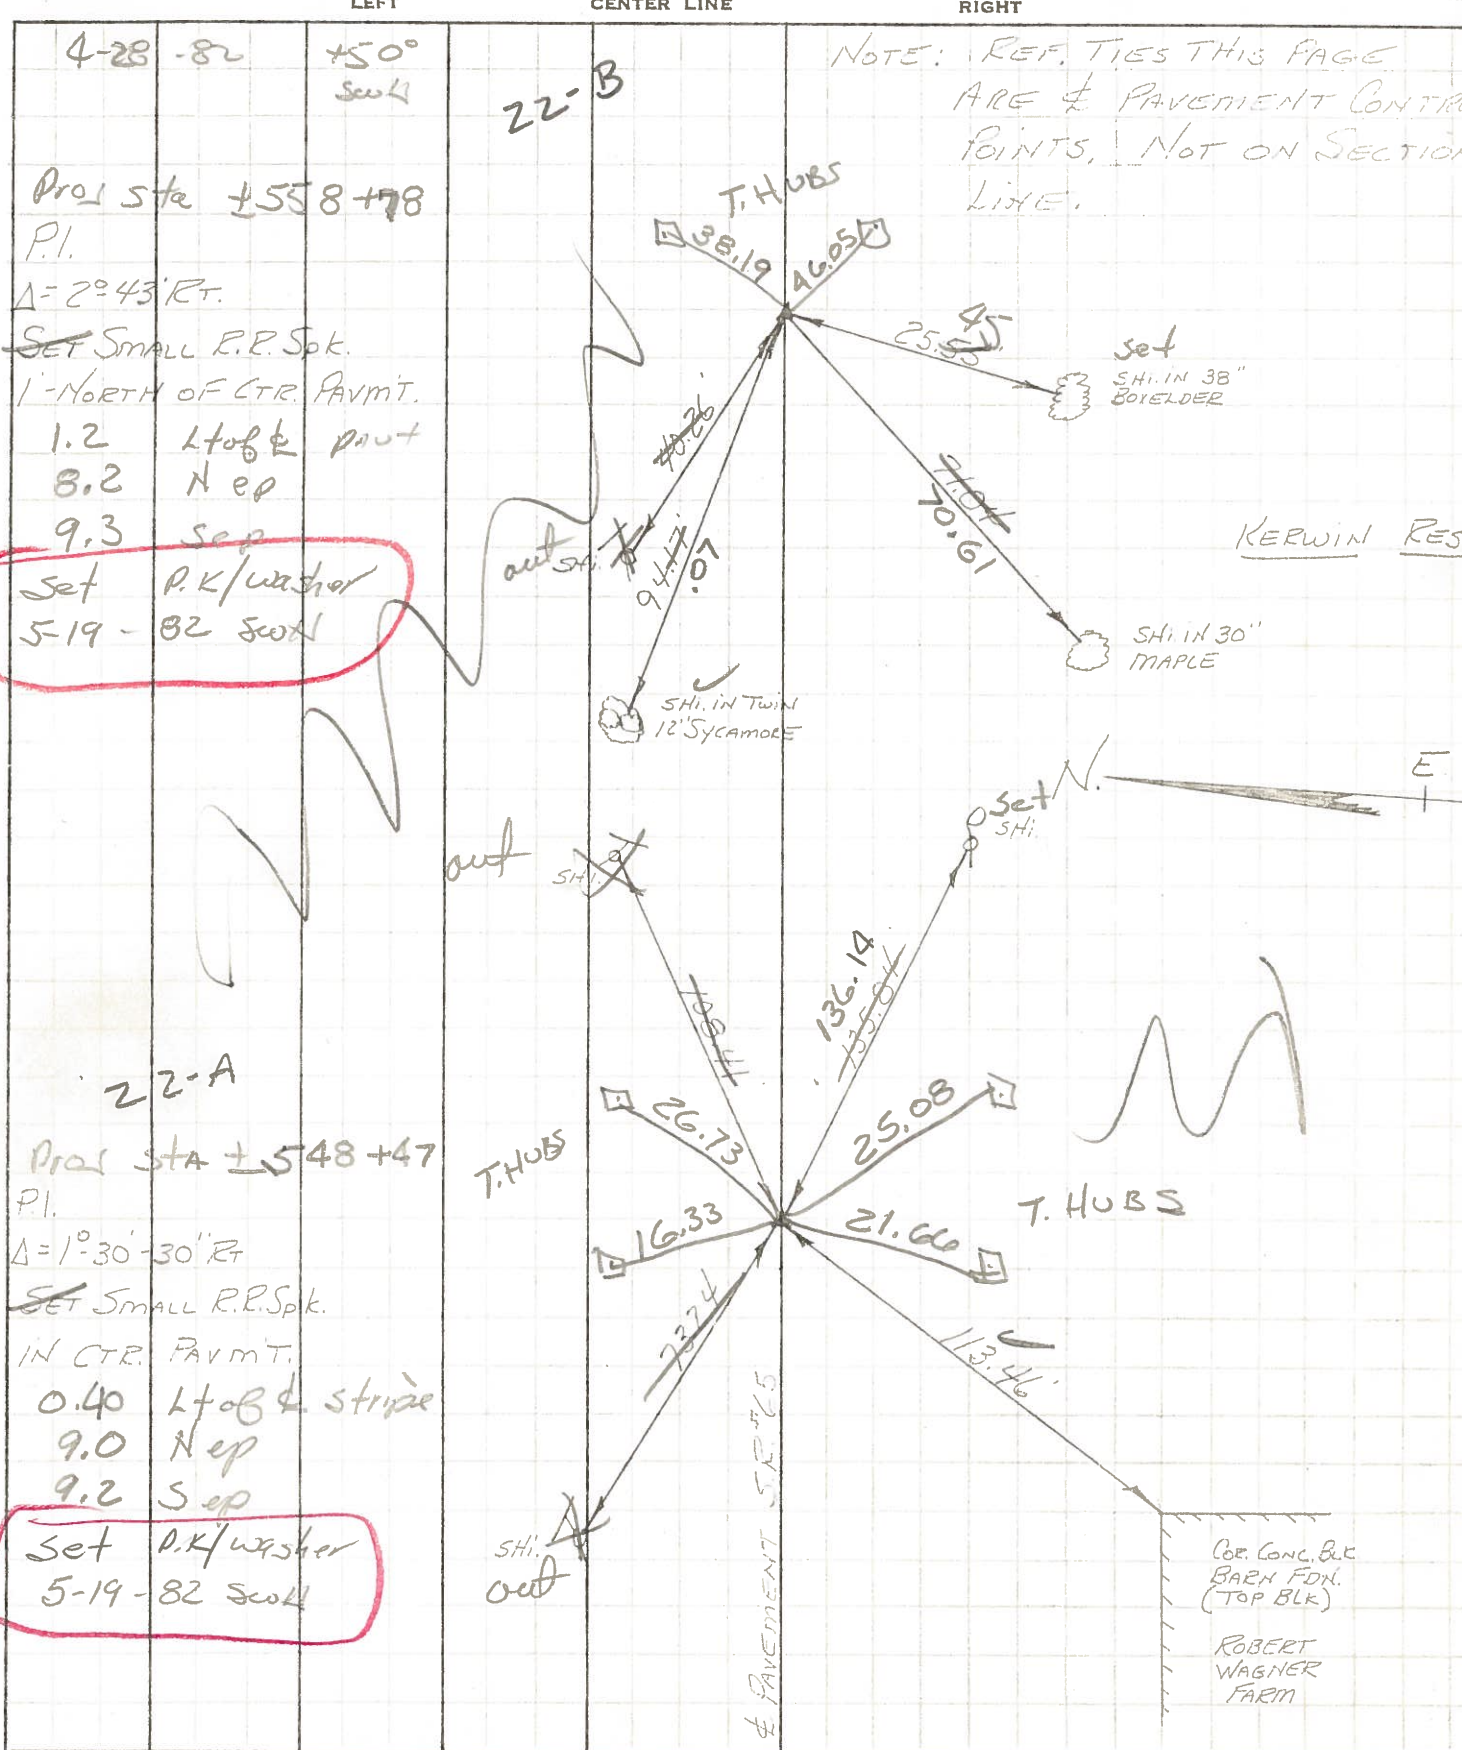 LEFT CENTER LINE RIGHT
4-28-82 +50°
Scott
22-B
NOTE: REF. TIES THIS PAGE
ARE ℄ PAVEMENT CONTRO
POINTS, NOT ON SECTION
LINE.
Proj sta ±558+78
P.I.
Δ=2°43' RT.
SET SMALL R.R. Spk.
1'-NORTH OF CTR. PAVM'T.
1.2 Lt of ℄ pavt
8.2 N ep
9.3 S ep
Set P.K/washer
5-19-82 Scott
T. HUBS
38.19
46.05
25.55
45
set
SHI. IN 38"
BOXELDER
40.26
71.04
70.61
out
SHI.
94.17
.07
KERWIN RES
SHI. IN 30"
MAPLE
SHI. IN TWIN
12" SYCAMORE
N.
E
Set
SHI.
out
SHI.
108.41
136.14
135.84
22-A
Proj sta ±548+47
P.I.
Δ=1°-30'-30" RT
SET SMALL R.R. Spk.
IN CTR. PAVM'T.
0.40 Lt of ℄ stripe
9.0 N ep
9.2 S ep
Set P.K/washer
5-19-82 Scott
T. HUBS
26.73
25.08
16.33
21.66
T. HUBS
73.74
113.46'
SHI.
out
℄ PAVEMENT S.R. #65
COR. CONC. BLK
BARN FDN.
(TOP BLK)
ROBERT
WAGNER
FARM